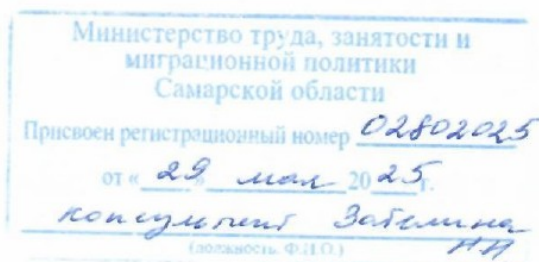 Министерство труда, занятости и
миграционной политики
Самарской области
Присвоен регистрационный номер 02802025
от « 29 » мая 2025 г.
консультант
(должность, Ф.И.О.)